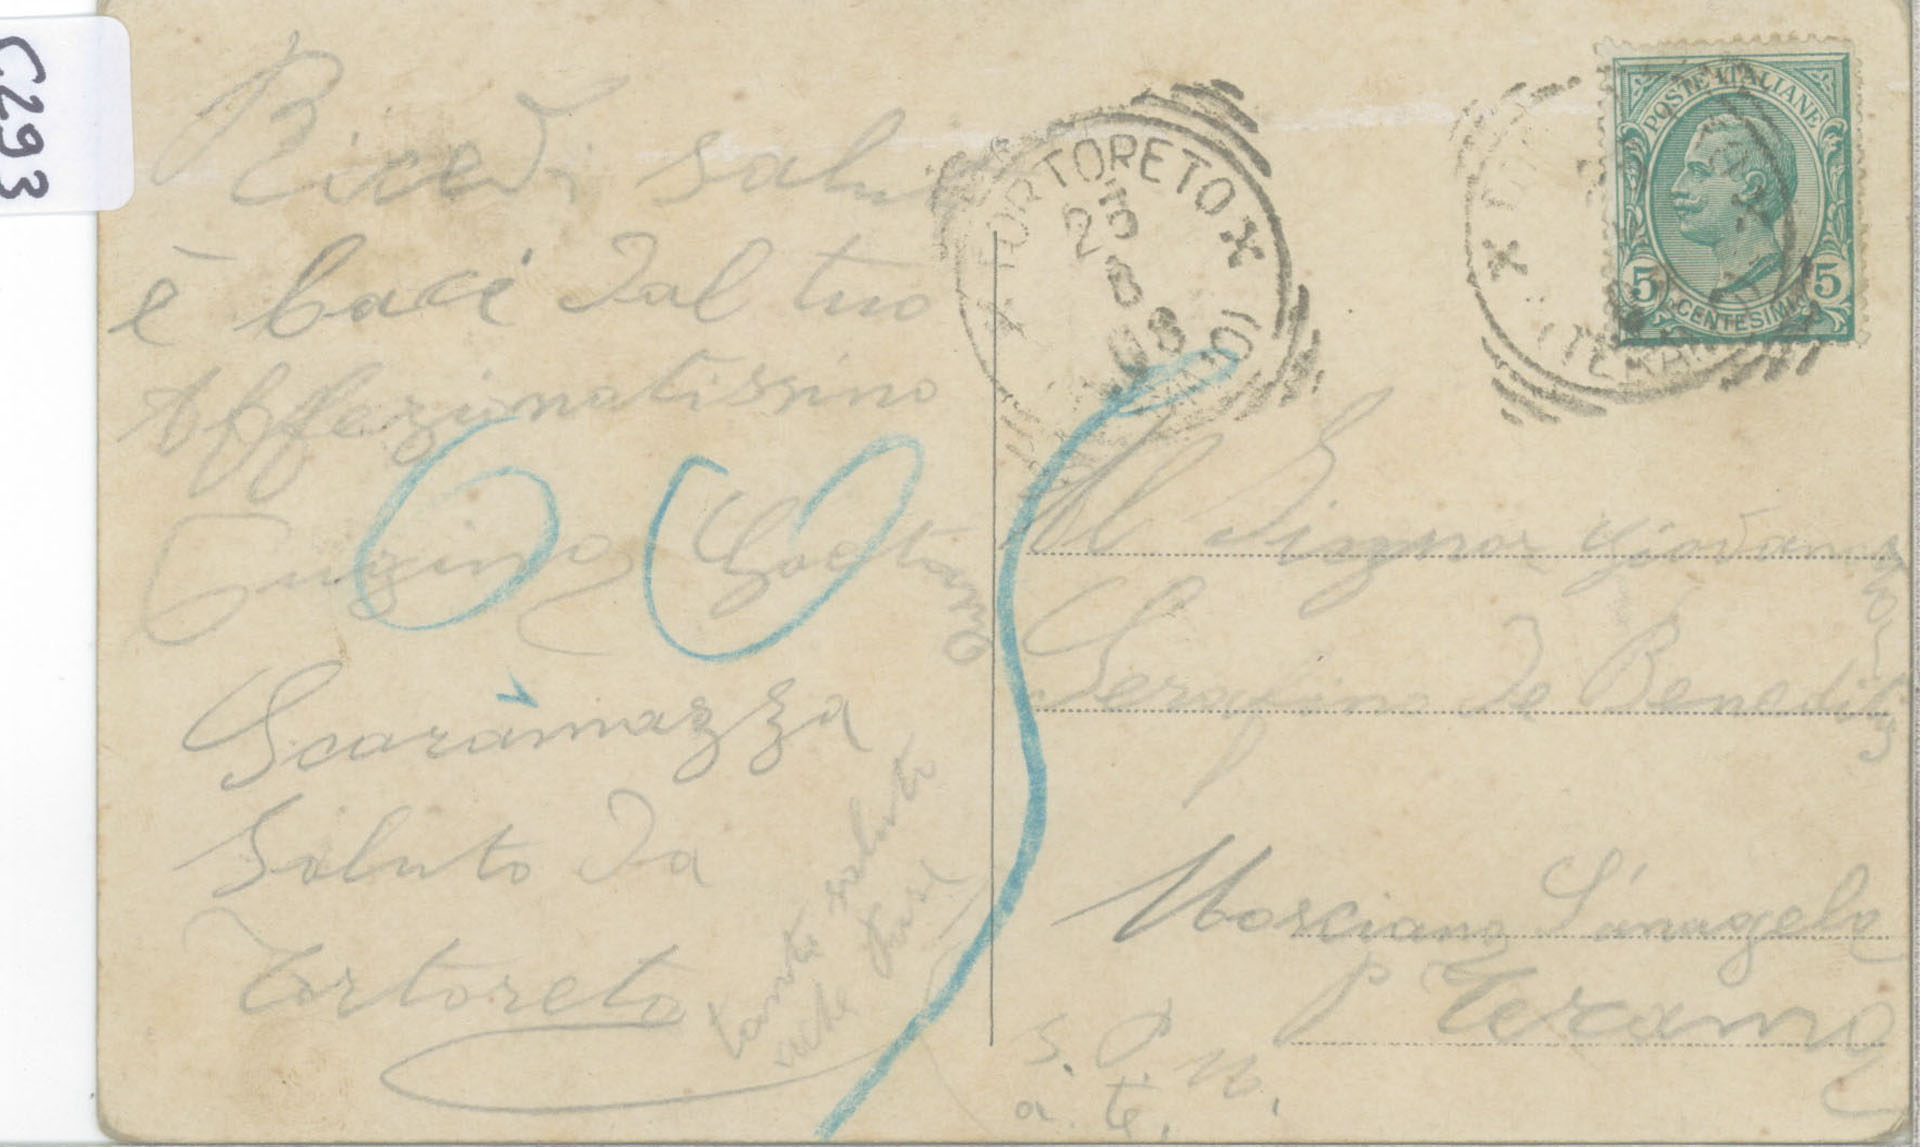 C293
Ricevi salu
è baci dal tuo
Affezionatissino
Cugino Gaetano
Scaramazza
Saluto da
Tortoreto
tante saluto
TORTORETO
23 8 08
(TERAMO)
POSTE ITALIANE
5 5
CENTESIMI
(TERAMO)
Al Signor Giovanni
Serafino De Benedit
Mosciano S'anagelo
P Teramo
S. P. M.
a. te.